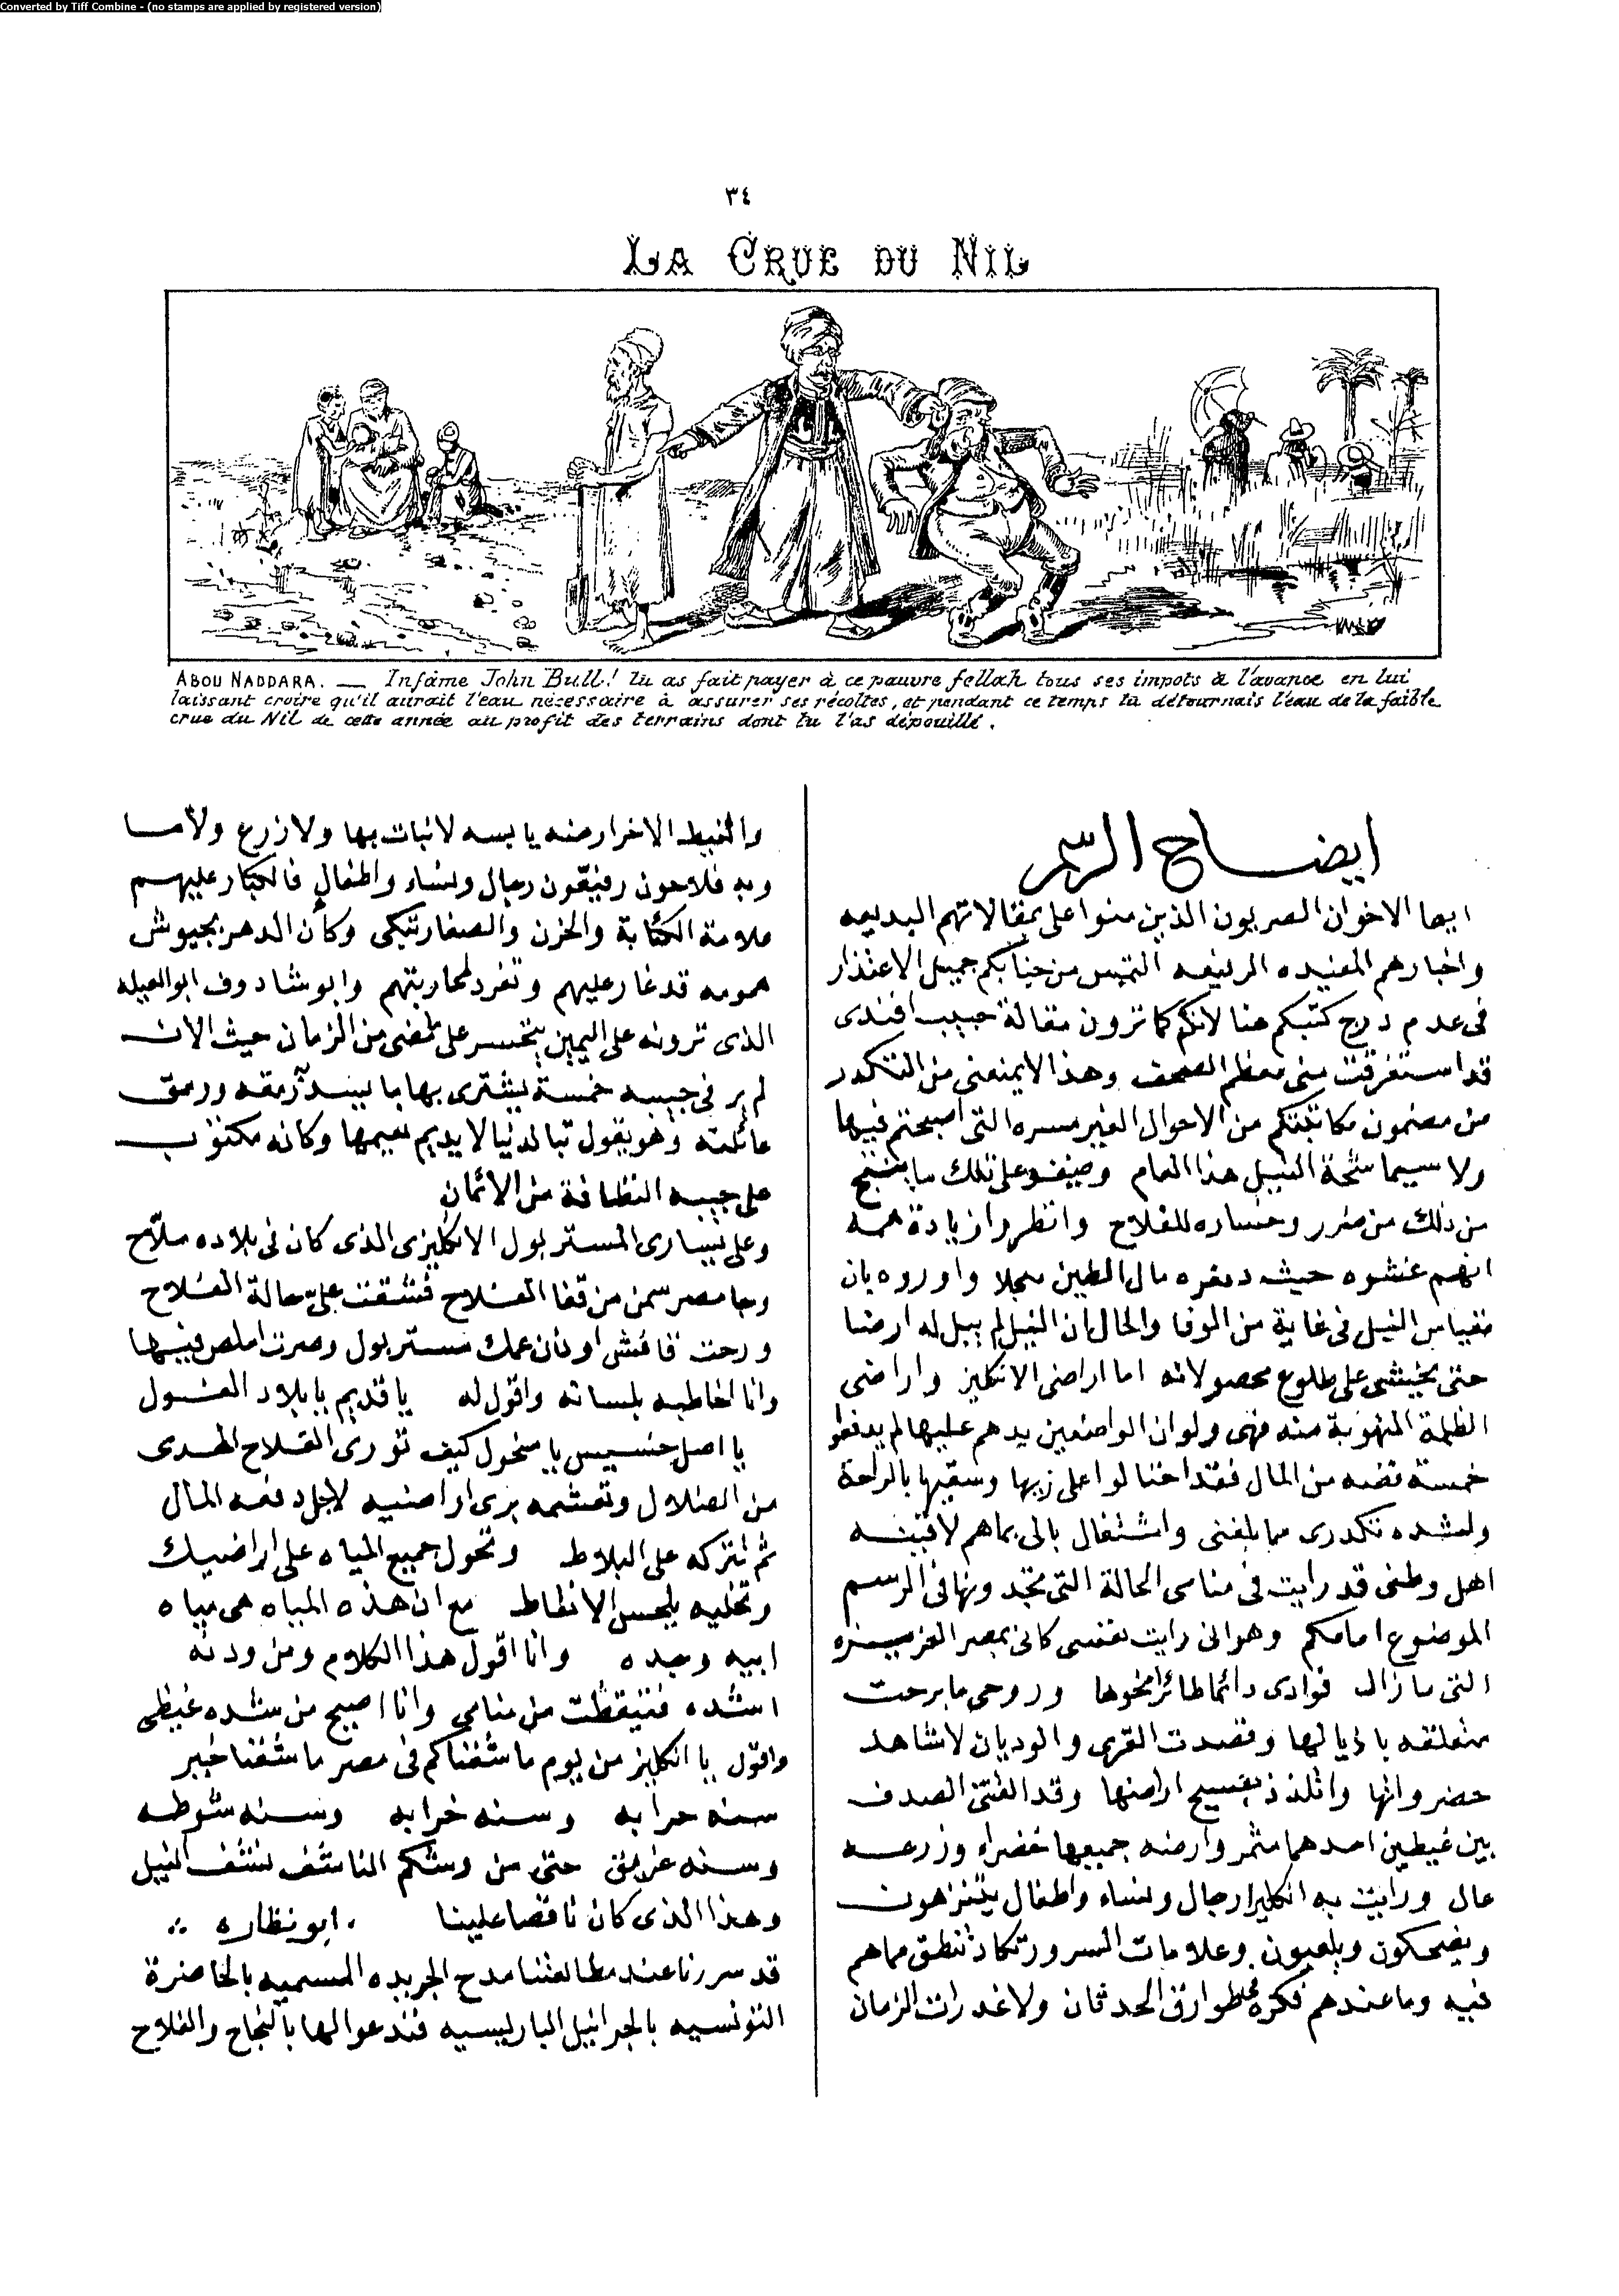 Converted by Tiff Combine - (no stamps are applied by registered version)
٣٤
LA CRUE DU NIL
ABOU NADDARA. — Infâme John Bull! tu as fait payer à ce pauvre fellah tous ses impots à l'avance en lui
laissant croire qu'il aurait l'eau nécessaire à assurer ses récoltes, et pendant ce temps tu détournais l'eau de la faible
crue du Nil de cette année au profit des terrains dont tu l'as dépouillé.
ايضاح الرسم
ايها الاخوان المصريون الذين منوا على بمقالاتهم البديعه
واخبارهم المفيده الرفيعه التمس من جنابكم جميل الاعتذار
فى عدم درج كتبكم هنا لانكم كما ترون مقالة حبيب افندى
قد استغرقت منى معظم الصحف وهذا لا يمنعنى من التكدر
من مضمون مكاتبتكم من الاحوال الغير مسره التى اصبحتم فيها
ولا سيما شحة النيل هذا العام وضيفو على ذلك ما ينتج
من ذلك من ضرر وخساره للفلاح وانظروا زيادة همه
انهم غشوه حيث دفعوه مال الطين معجلا واوروه بان
مقياس النيل فى غاية من الوفا والحال ان النيل لم يبل له ارضا
حتى يختشى على طلوع محصولاته اما اراضى الانكليز واراضى
الظلمة المنهوبة منه فهى ولو ان الواضعين يدهم عليها لم يدفعوا
خمسة فضه من المال فقد احتالوا على ريها وسقيها بالراحة
ولشده تكدرى مما بلغنى واشتغال بالى بما هم لاقينه
اهل وطنى قد رايت فى منامى الحالة التى تجدونها فى الرسم
الموضوع امامكم وهو انى رايت نفسى كانى بمصر العزيزه
التى ما زال فوادى دائما طائرا نحوها وروحى ما برحت
متعلقه باذيالها وقصدت القرى والوديان لاشاهد
حضرواتها واتلذذ بفسيح اراضها وقد القتنى الصدف
بين غيطين احدهما مثمر وارضه جميعها خضراء وزرعه
عال ورايت به انكليزا رجال ونساء واطفال يتنزهون
ويضحكون ويلعبون وعلامات السرور تكاد تنطق مما هم
فيه وما عندهم فكره بطوارق الحدثان ولا غدرات الزمان
والغيط الاخر ارضه يابسه لا نبات بها ولا زرع ولا ما
وبه فلاحون رفيقون رجال ونساء واطفال فالكبار عليهم
علامة الكئابة والحزن والصغار تبكى وكأن الدهر بجيوش
همومه قد غار عليهم وتفرد لمحاربتهم وابو شادوف ابو العيله
الذى ترونه على اليمين يتحسر على ما مضى من الزمان حيث الان
لم ير فى جيبه خمسة يشترى بها ما يسد رمقه ورمق
عائلته وهو يقول تبا لدنيا لا يديم نعيمها وكانه مكتوب
على جيبه النظافة من الائمان
وعلى يسارى المستر بول الانكليزى الذى كان فى بلاده ملّاح
وجا مصر سمن من قفا الفلاح فشقت علىّ حالة الفلاح
ورحت قافش اودان عمك مستر بول وصرت املص فيها
وانا اخاطبه بلسانه واقول له يا قديم يا بلاد الفول
يا اصل خسيس يا مخول كيف تورى الفلاح الهدى
من الضلال وتعشمه برى اراضيه لاجل دفعه المال
ثم تتركه على البلاط وتحول جميع المياه على اراضيك
وتخليه يلحس الانطاط مع ان هذه المياه هى مياه
ابيه وجده وانا اقول هذا الكلام ومن ودنه
اشده فتيقظت من منامى وانا اصيح من شده غيظى
واقول يا انكليز من يوم ما شفناكم فى مصر ما شفنا خير
سنه حرابه وسنه خرابه وسنه شوطه
وسنه غريق حتى من وشكم الناشف نشف النيل
وهذا الذى كان ناقصا علينا . ابو نظاره
قد سررنا عند مطالعتنا مدح الجريده المسميه بالحاضرة
التونسيه بالجرانيل الباريسيه فندعوا لها بالنجاح والفلاح